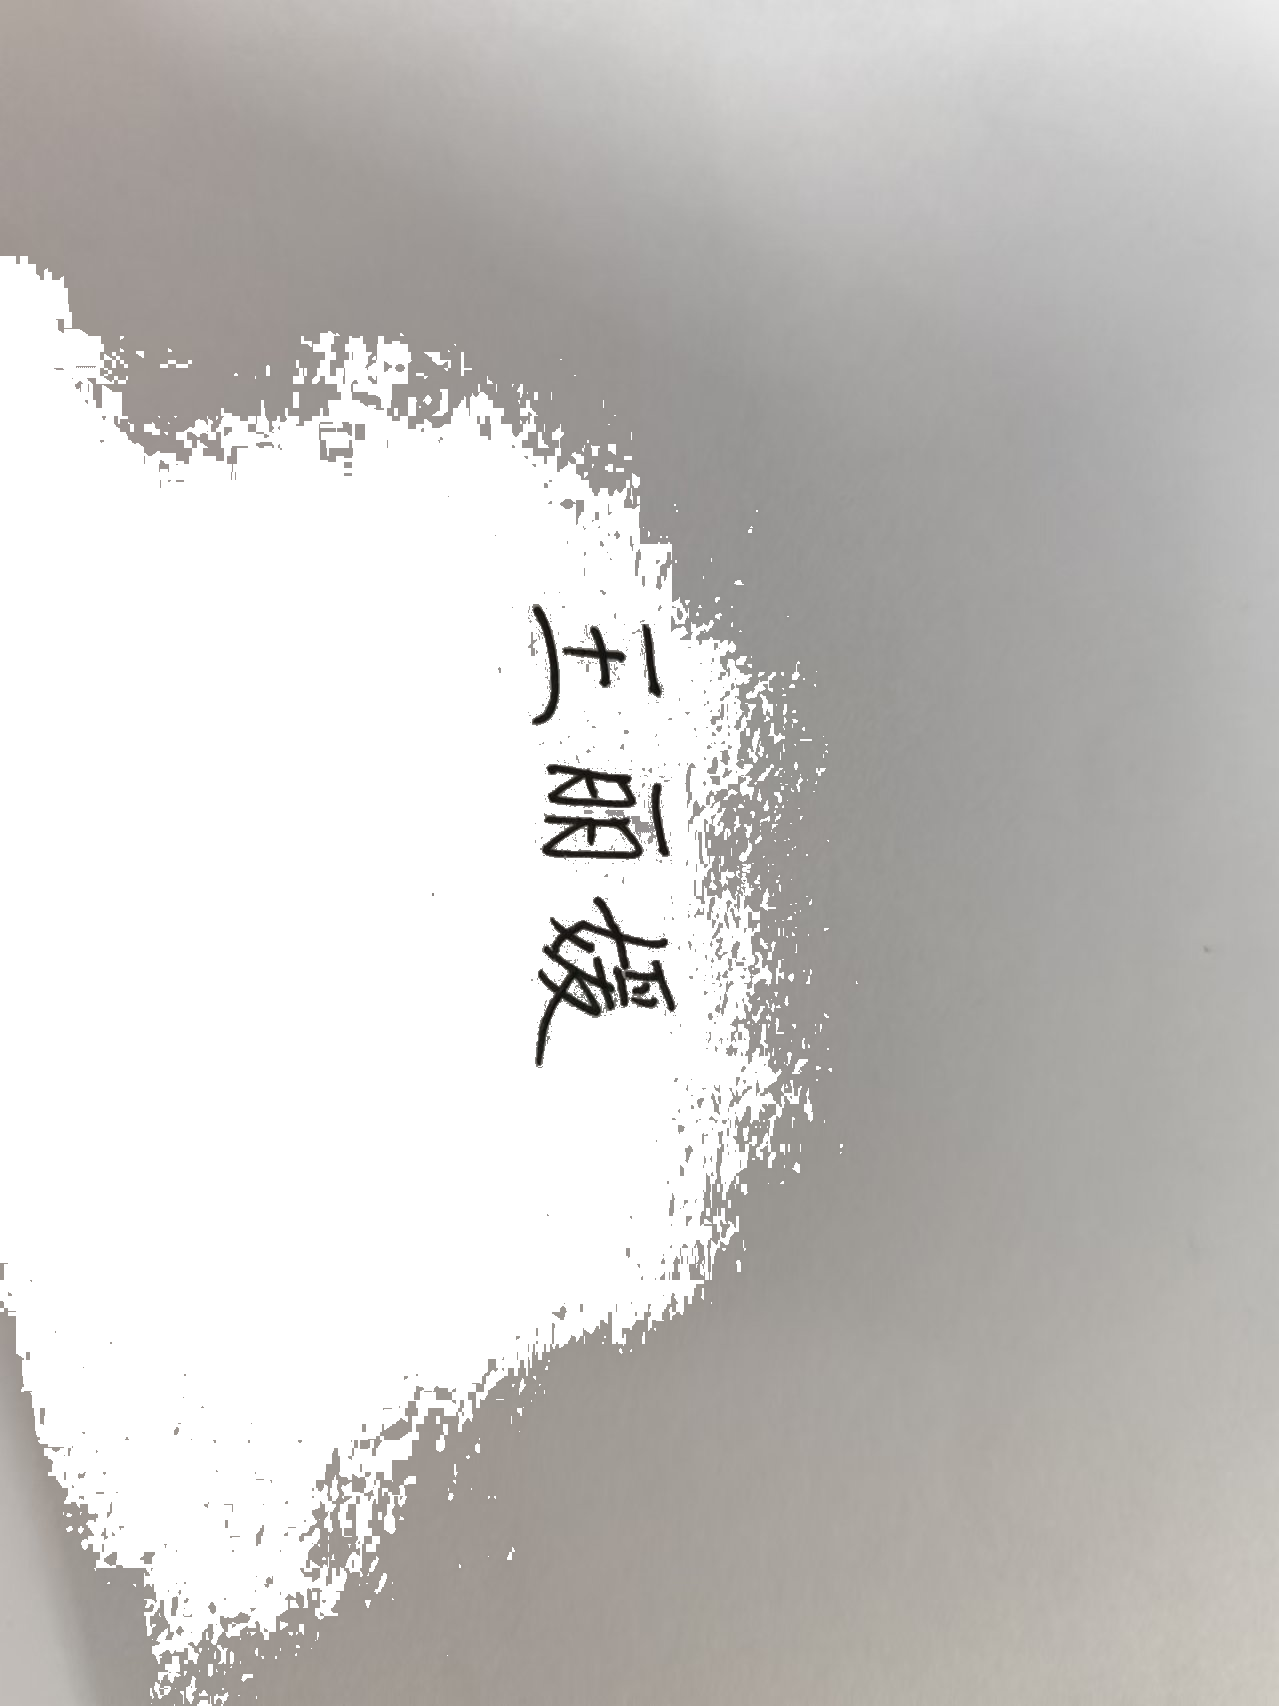 王丽媛